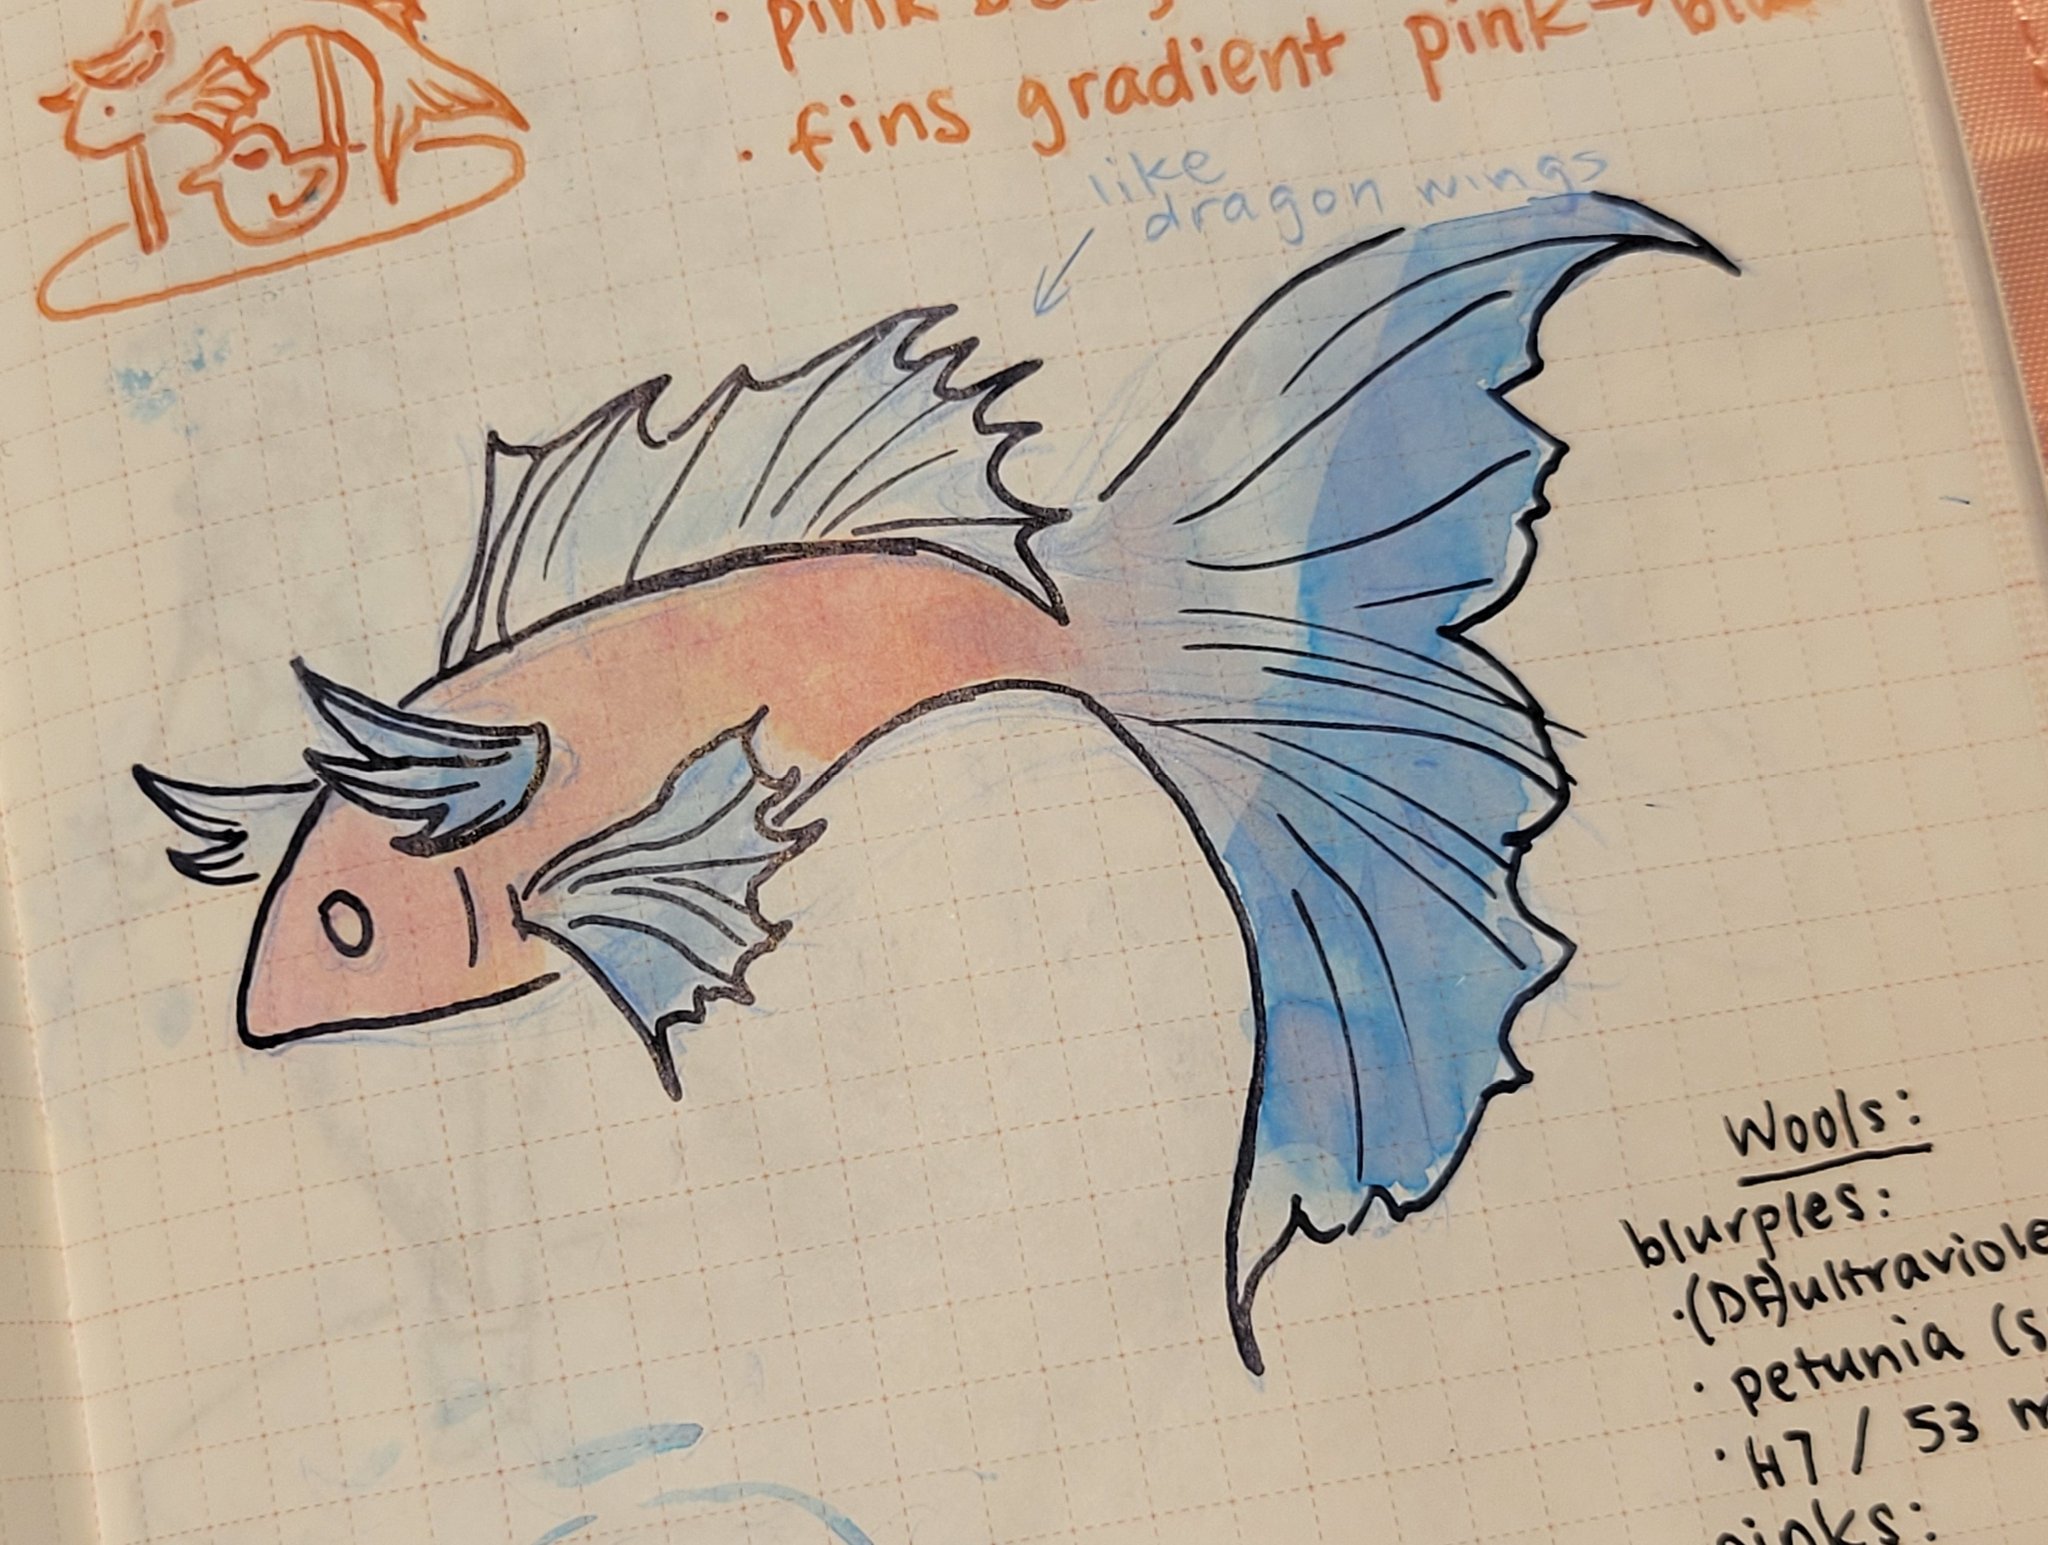 · pink
· fins gradient pink →
like
dragon wings
Wools:
blurples:
· (DF) ultraviole
· petunia (s
· H7 / 53 m
pinks: